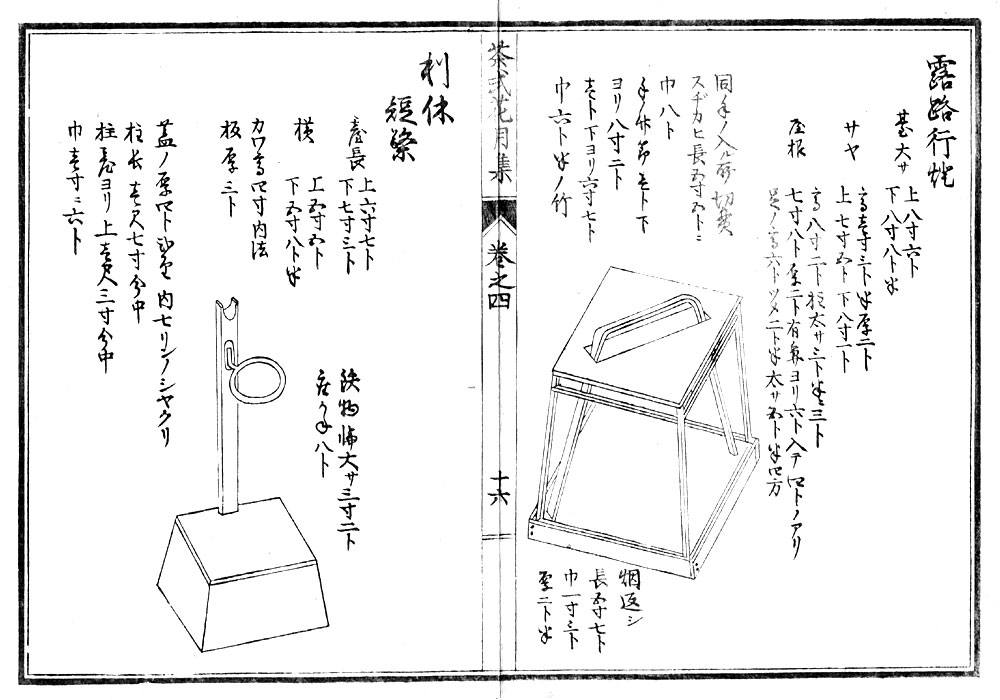 露路行灯
基大サ
上八寸六ト
下八寸八ト半
高壱寸三ト半厚二ト
サヤ
上七寸五ト下八寸一ト
高八寸二ト柱太サ三ト半ニ三ト
屋根
七寸八ト厚二ト有象ヨリ六ト入テ四トノアリ
足ノ高六トツメ二ト半太サ五ト半四方
同手ノ入ル所切貫
スヂカヒ長五寸五トニ
巾八ト
手ノ竹節モト下
ヨリ八寸二ト
壱ト下ヨリ六寸七ト
巾六ト半ノ竹
烟返シ
長五寸七ト
巾一寸三ト
厚二ト半
茶式花月集
巻之四
十六
利休
短檠
臺長
上六寸七ト
下七寸三ト
横
上五寸五ト
下五寸八ト半
カワ高四寸内法
板厚三ト
鉄物輪大サ三寸二ト
蓋ノ厚四ト 内七リンノシヤクリ
柱長壱尺七寸分中
柱臺ヨリ上壱尺三寸分中
巾壱寸ニ六ト